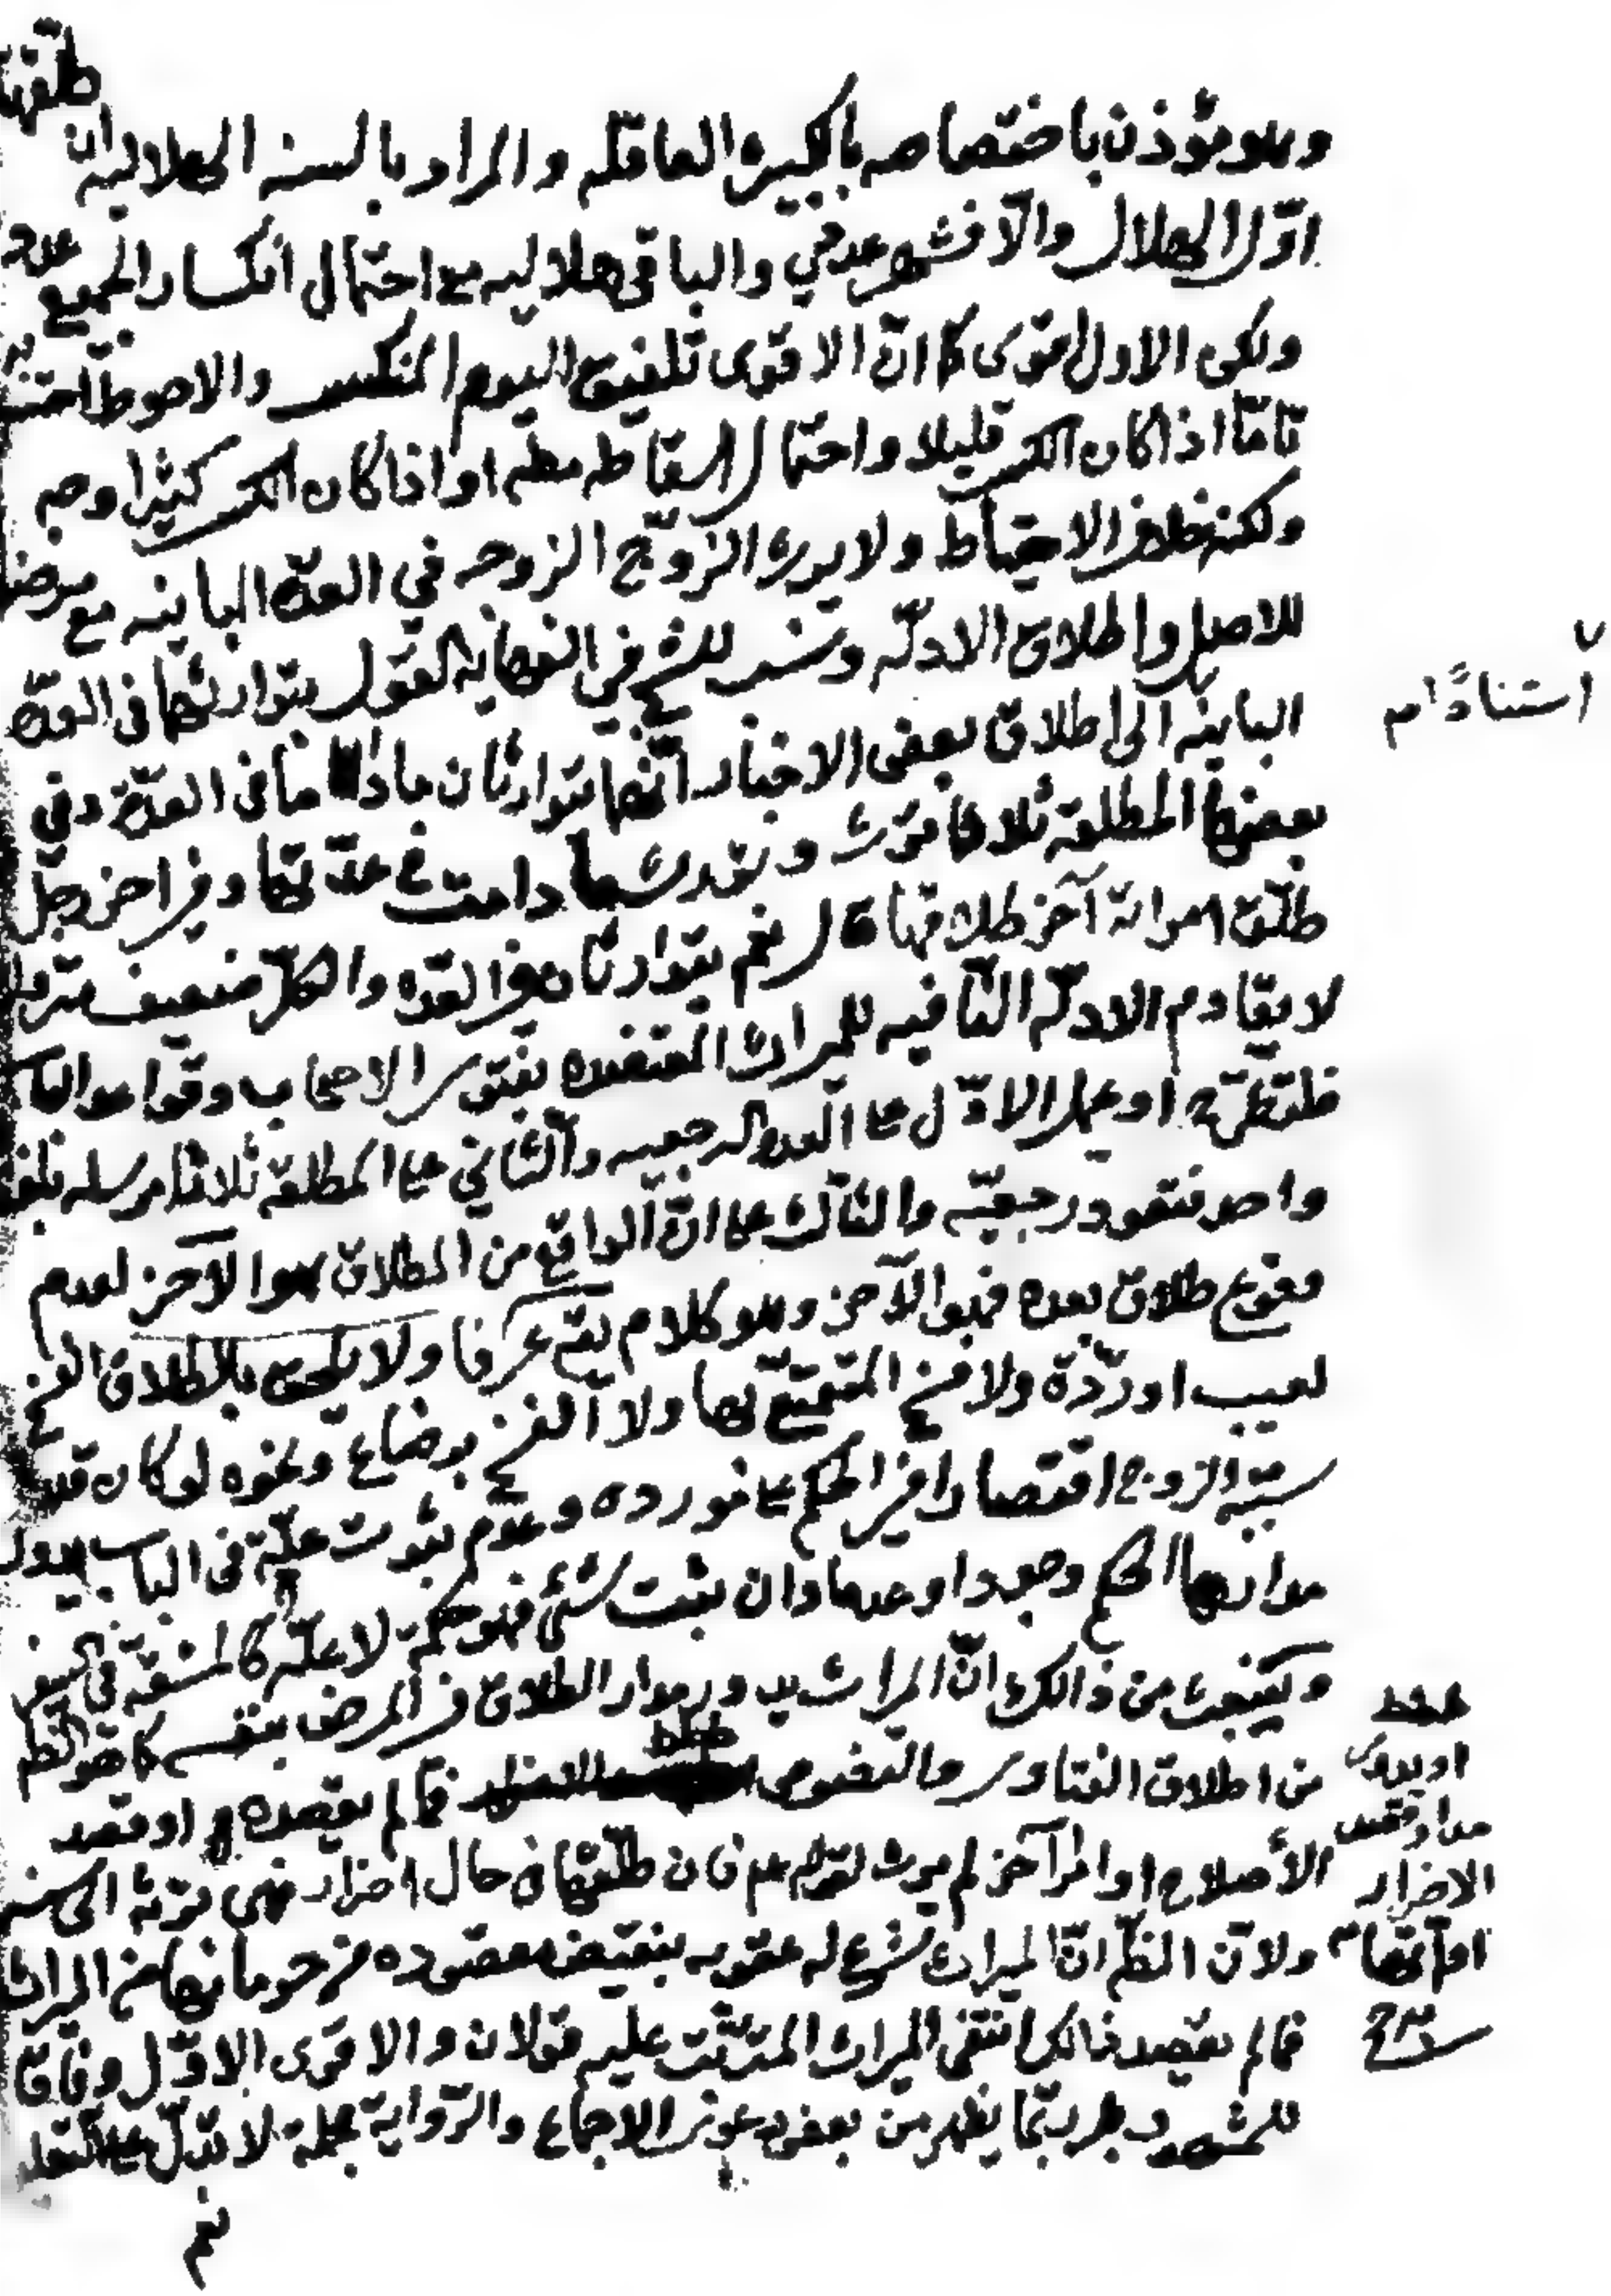 وهو مؤذن باختصاصه بالكبيرة العاقلة والمراد بالسنة الهلالية ان طلقها
اوّل الهلال والّا فشهر عددي والباقي هلاليه مع احتمال انكسار الجميع عدد
ولكن الاول اقوى كما انّ الاقوى تلفيق اليوم المنكسر والاحوط
تامّا اذا كان الكسر قليلا واحتمال اسقاطه مطلقا او اذا كان الكسر كثيرا وجه
ولكنه خلاف الاحتياط ولا يرث الزوج الزوجه في العدّة الباينه مع مرضه
للاصل واطلاق الادلّه ونسب للشيخ في النهاية القول بتوارثهما في العدّة
استنادًا م
الباينه الى اطلاق بعض الاخبار انّهما يتوارثان ما داما في العدّة وفي
بعضها المطلقة ثلاثا ترث وتورث ما دامت في عدّتها وفي اخر رجل
طلّق امراته آخر طلاقها قال نعم يتوارثان في العدّه والكلّ ضعيف
لا يقاوم الادلّه النّافيه للميراث المعتضده بفتوى الاصحاب وقواعد
فلتطرح او يحمل الاوّل على العدة الرجعيه والثّاني على المطلقة ثلاثا مرسله
واحد فتعود رجعيّه والثّالث على انّ الواقع من الطلاق هو الآخر لعدم
وقوع طلاق بعده فهو الآخر وهو كلام يقع عرفا ولا يلحق بالطلاق الفسخ
لعيب او ردّة ولا فسخ المتمتّع بها ولا الفسخ برضاع ونحوه لو كان قد
سببه الزوج اقتصارا في الحكم على مورده وعدم ثبوت علّة في الباب يدور
مدارها الحكم وجودا وعدما وان يثبت شئ فهو حكمة لا علّه كالمشقّه في السفر
وينبعث من ذلك انّ الميراث يدور مدار الطلاق في المرض بنفسه كما هو الظم
من اطلاق الفتاوى والنصوص فما لم يقصده او قصد
او يدور
مدار قصد
الاضرار
او
الأصلاح او امرا آخر لم يرث لقوله عم فان طلّقها في حال اضرار فهي ترثه الى سنه
ولانّ الظّم انّ الميراث شرع له عقوبه بنقيض مقصوده من حرمانها من الميراث
فما لم يقصد ذلك انتفى الميراث المترتّب عليه قولان والاقوى الاوّل وفاقا
للمشهور بل ربّما يظهر من بعض دعوى الاجماع والرّواية مجملة لا تدلّ على
نعم